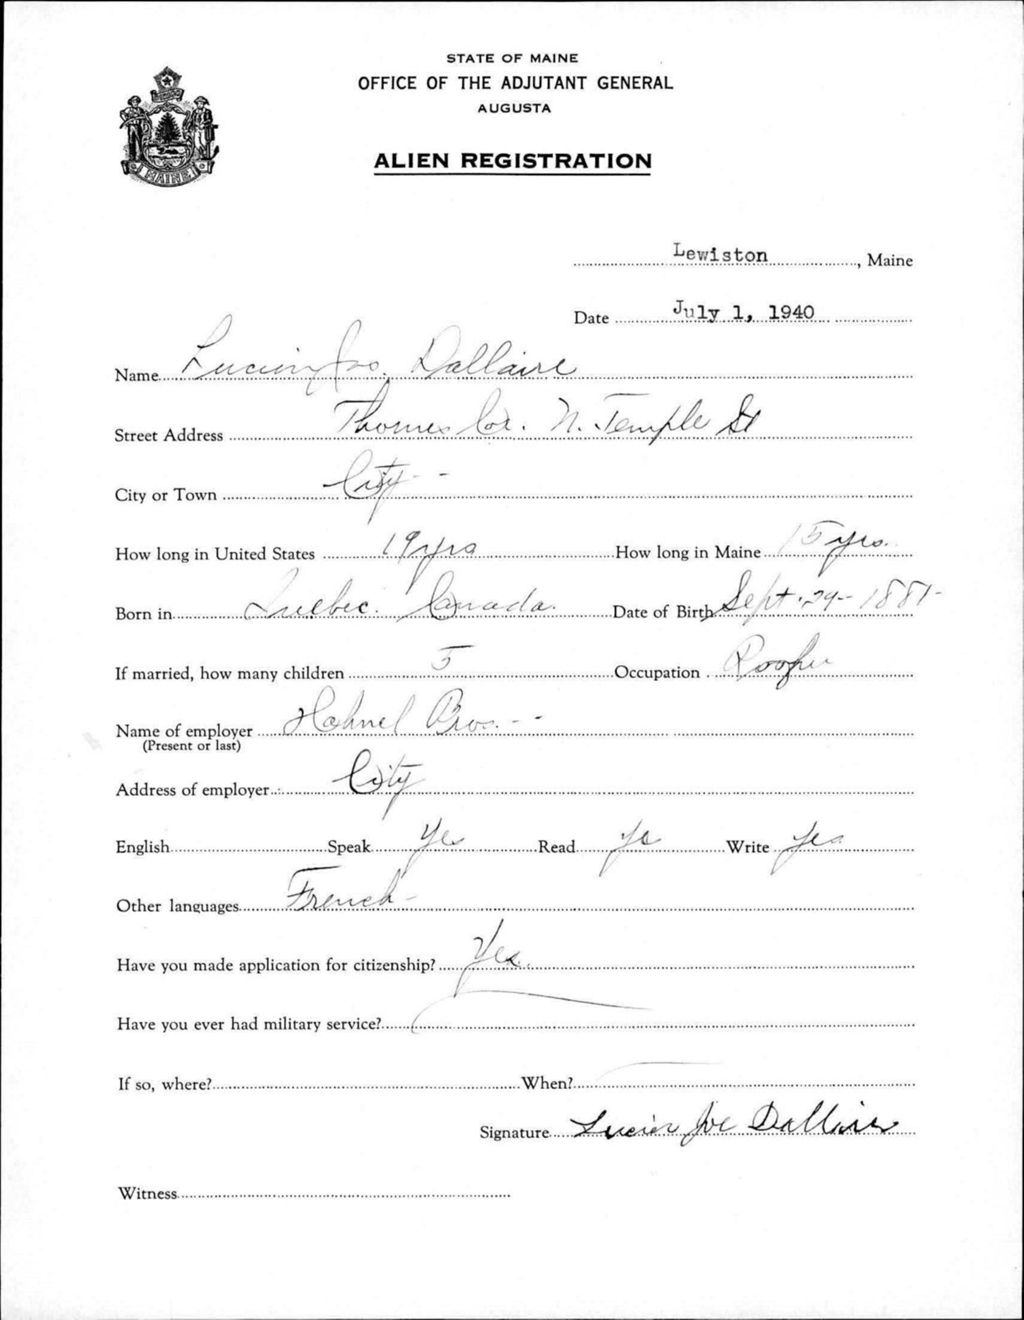 STATE OF MAINE
OFFICE OF THE ADJUTANT GENERAL
AUGUSTA
MAINE
ALIEN REGISTRATION
Lewiston, Maine
Date July 1, 1940
Name Lucien Jos. Dallaire
Street Address Thomes Cor. N. Temple St
City or Town City - -
How long in United States 19 yrs How long in Maine 15 yrs.
Born in Quebec. Canada. Date of Birth Sept. 29 - 1881 -
If married, how many children 5 Occupation Roofer
Name of employer Hahnel Bros. - -
(Present or last)
Address of employer City
English Speak Yes Read Yes Write Yes
Other languages French -
Have you made application for citizenship? Yes.
Have you ever had military service?
If so, where? When?
Signature Lucien Joe Dallaire
Witness